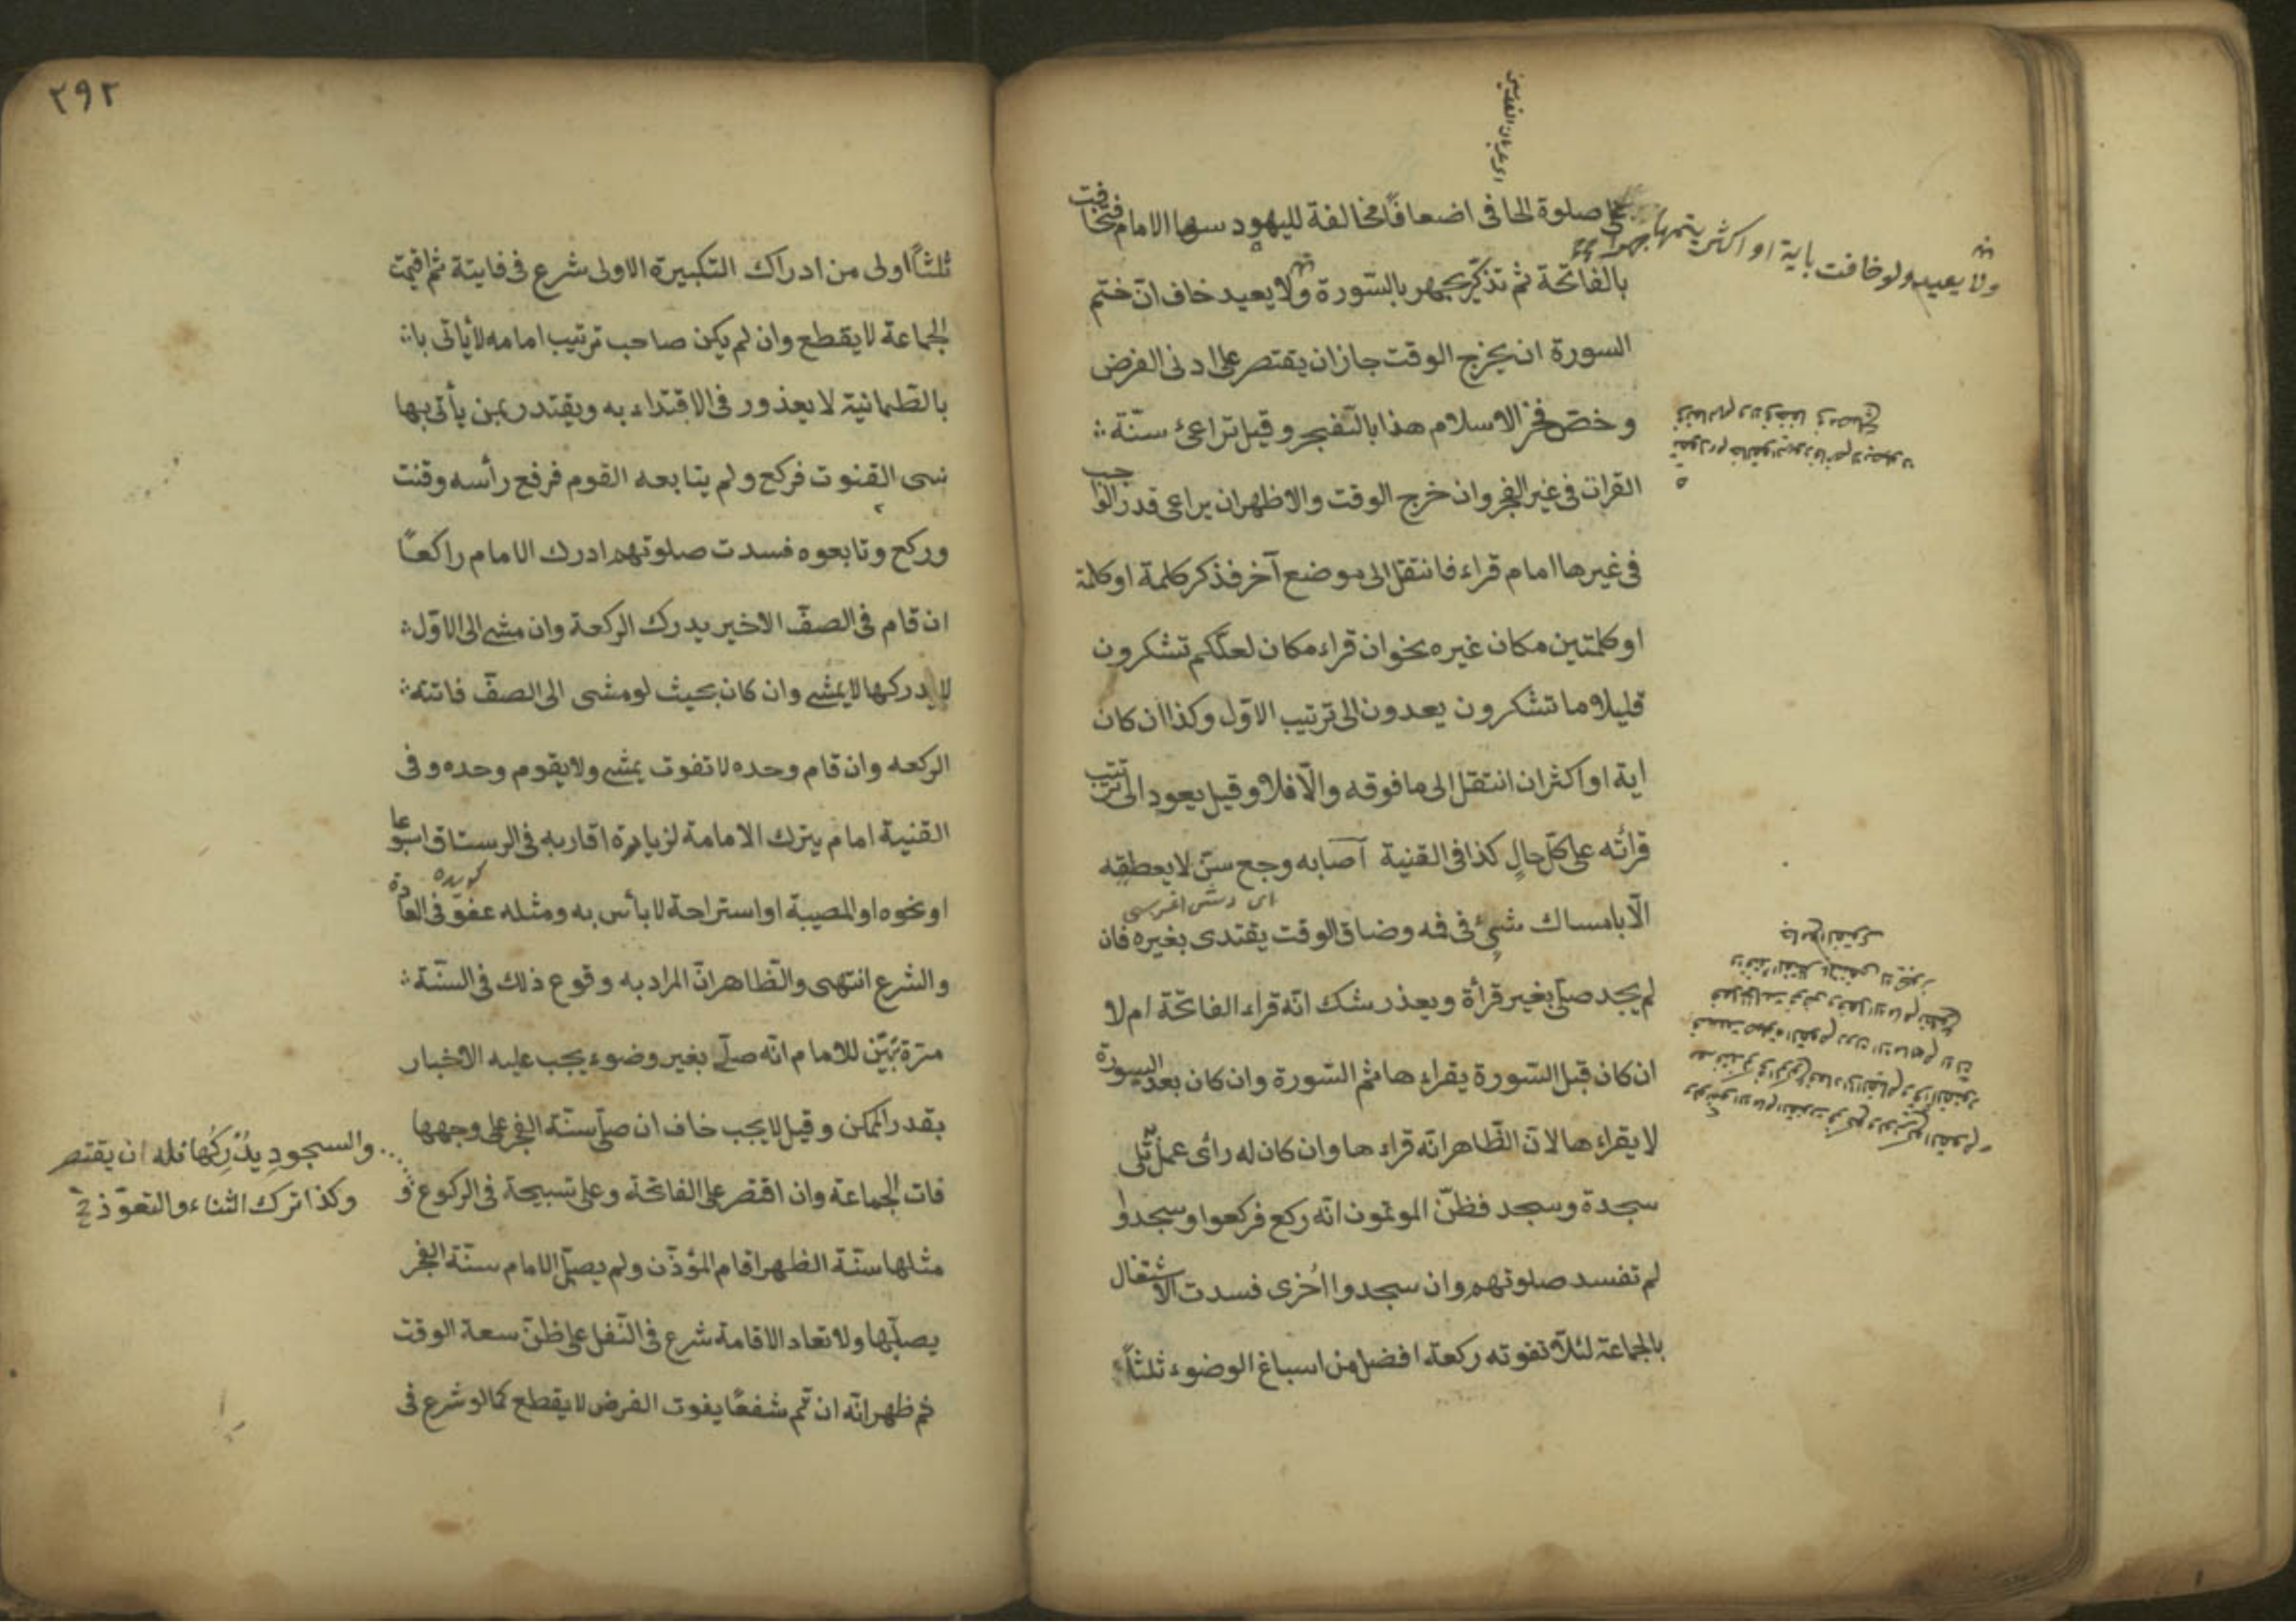 صلوة الحافى اضعافا مخالفة لليهود سها الامام فخافت
بالفاتحة ثم تذكر يجهر بالسّورة ولا يعيد خاف انّ ختم
السورة ان يخرج الوقت جاز ان يقتصر على ادنى الفرض
وخصّ فخر الاسلام هذا بالفجر وقيل تراعى سنّة
القراة فى غير الفجر وان خرج الوقت والاظهر ان يراعى قدر الواجب
فى غيرها امام قراء فانتقل الى موضع آخر فذكر كلمة او كلمة
او كلمتين مكان غيره نحو ان قراء مكان لعلّكم تشكرون
قليلا ما تشكرون يعدون الى ترتيب الاوّل وكذا ان كان
اية او اكثر ان انتقل الى ما فوقه والّا فلا وقيل يعود الى ترتيب
قرائه على كلّ حالٍ كذا فى القنية آصابه وجع سنّ لا يعطقه
الّا بامساك شيئ فى فمه وضاق الوقت يقتدى بغيره فان
لم يجد صلّى بغير قرأة ويعذر شك انّه قراء الفاتحة ام لا
ان كان قبل السّورة يقراء ها ثم السّورة وان كان بعد السورة
لا يقراء ها لانّ الظّاهر انّه قراء ها وان كان له رأى عمل تلى
سجدة وسجد فظنّ الموتمون انّه ركع فركعوا وسجدوا
لم تفسد صلوتهم وان سجدوا اُخرى فسدت الاشتغال
بالجماعة لئلّا تفوته ركعة افضل من اسباغ الوضوء ثلثاً
ولا يعيد ولو خافت باية او اكثر يتمها جهرا
٢٩٢
ثلثاً اولى من ادراك التكبيرة الاولى شرع فى فايتة ثم اقيمت
الجماعة لا يقطع وان لم يكن صاحب ترتيب امامه لا يأتى
بالطّمانية لا يعذور فى الاقتداء به ويقتدر بمن يأتى بها
نسى القنوت فركع ولم يتابعه القوم فرفع رأسه وقنت
وركع وتابعوه فسدت صلوتهم ادرك الامام راكعًا
ان قام فى الصفّ الاخير يدرك الركعة وان مشى الى الاوّل
لا يدركها لا يمشى وان كان بحيث لو مشى الى الصفّ فاتته
الركعه وان قام وحده لا تفوت يمشى ولا يقوم وحده وفى
القنية امام يترك الامامة لزيارة اقاربه فى الرستاق اسبوعا
او نحوه او لمصيبة او استراحة لا بأس به ومثله عفوّ فى العادة
والشرع انتهى والظّاهر انّ المراد به وقوع ذلك فى السّنة
مرّة تبيّن للامام انّه صلّى بغير وضوء يجب عليه الاخبار
بقدر الممكن وقيل لا يجب خاف ان صلّى سنّة الفجر على وجهها
فات الجماعة وان اقتصر على الفاتحة وعلى تسبيحة فى الركوع و
مثلها سنّة الظهر اقام المؤذّن ولم يصلّ الامام سنّة الفجر
يصلّيها ولا تعاد الاقامة شرع فى النّفل على ظنّ سعة الوقت
ثم ظهر انّه ان تمّ شفعًا يفوت الفرض لا يقطع كما لو شرع فى
والسجود يُدْرِكُها فله ان يقتصر
وكذا ترك الثناء والتعوّذ